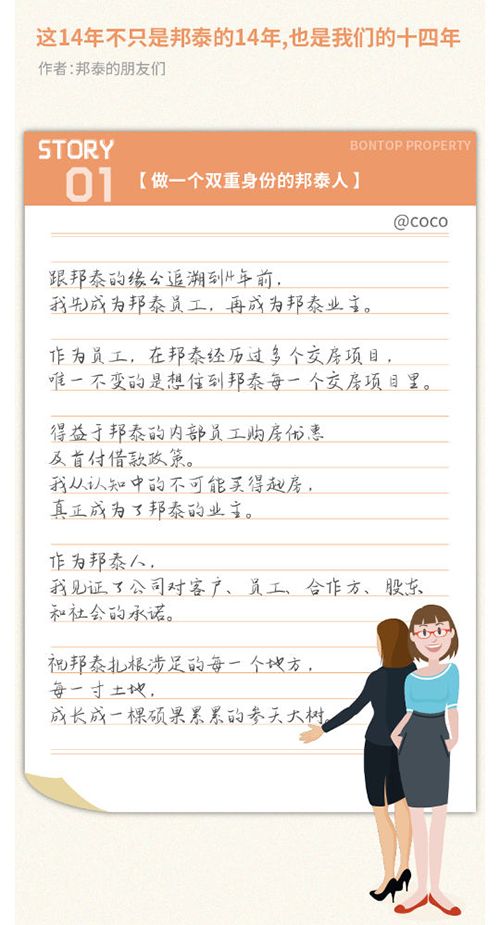 这14年不只是邦泰的14年,也是我们的十四年
作者:邦泰的朋友们
STORY
BONTOP PROPERTY
01
【做一个双重身份的邦泰人】
@coco
跟邦泰的缘分追溯到14年前，
我先成为邦泰员工，再成为邦泰业主。
作为员工，在邦泰经历过多个交房项目，
唯一不变的是想住到邦泰每一个交房项目里。
得益于邦泰的内部员工购房优惠
及首付借款政策。
我从认知中的不可能买得起房，
真正成为了邦泰的业主。
作为邦泰人，
我见证了公司对客户、员工、合作方、股东
和社会的承诺。
祝邦泰扎根涉足的每一个地方，
每一寸土地，
成长成一棵硕果累累的参天大树。